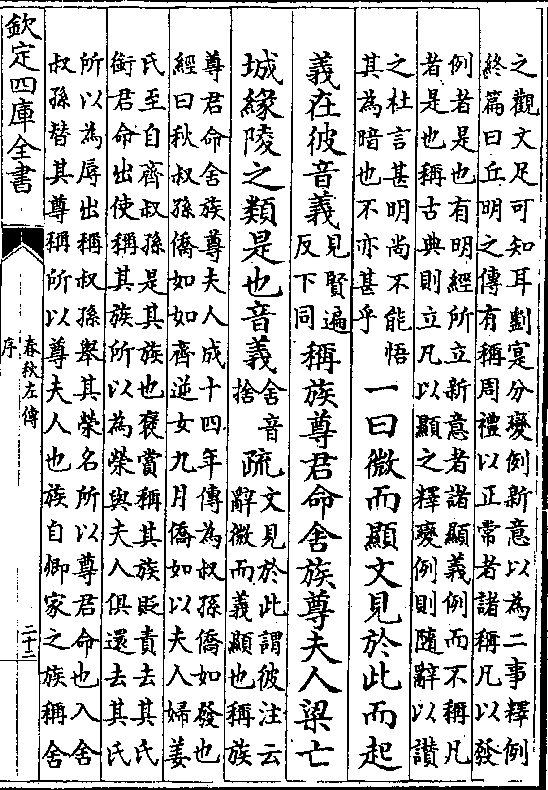 之觀文足可知耳劃寔分變例新意以為二事釋例
終篇曰丘明之傳有稱周禮以正常者諸稱凡以發
例者是也有明經所立新意者諸顯義例而不稱凡
者是也稱古典則立凡以顯之釋變例則隨辭以讚
之杜言甚明尚不能悟
其為暗也不亦甚乎
一曰微而顯文見於此而起
義在彼音義
見賢遍
反下同
稱族尊君命舍族尊夫人梁亡
城緣陵之類是也音義
舍音
捨
疏
文見於此謂彼注云
辭微而義顯也稱族
尊君命舍族尊夫人成十四年傳為叔孫僑如發也
經曰秋叔孫僑如如齊逆女九月僑如以夫人婦姜
氏至自齊叔孫是其族也褒賞稱其族貶責去其氏
銜君命出使稱其族所以為榮與夫人俱還去其氏
所以為辱出稱叔孫舉其榮名所以尊君命也入舍
叔孫替其尊稱所以尊夫人也族自卿家之族稱舍
欽定四庫全書
春秋左傳
序
二十三